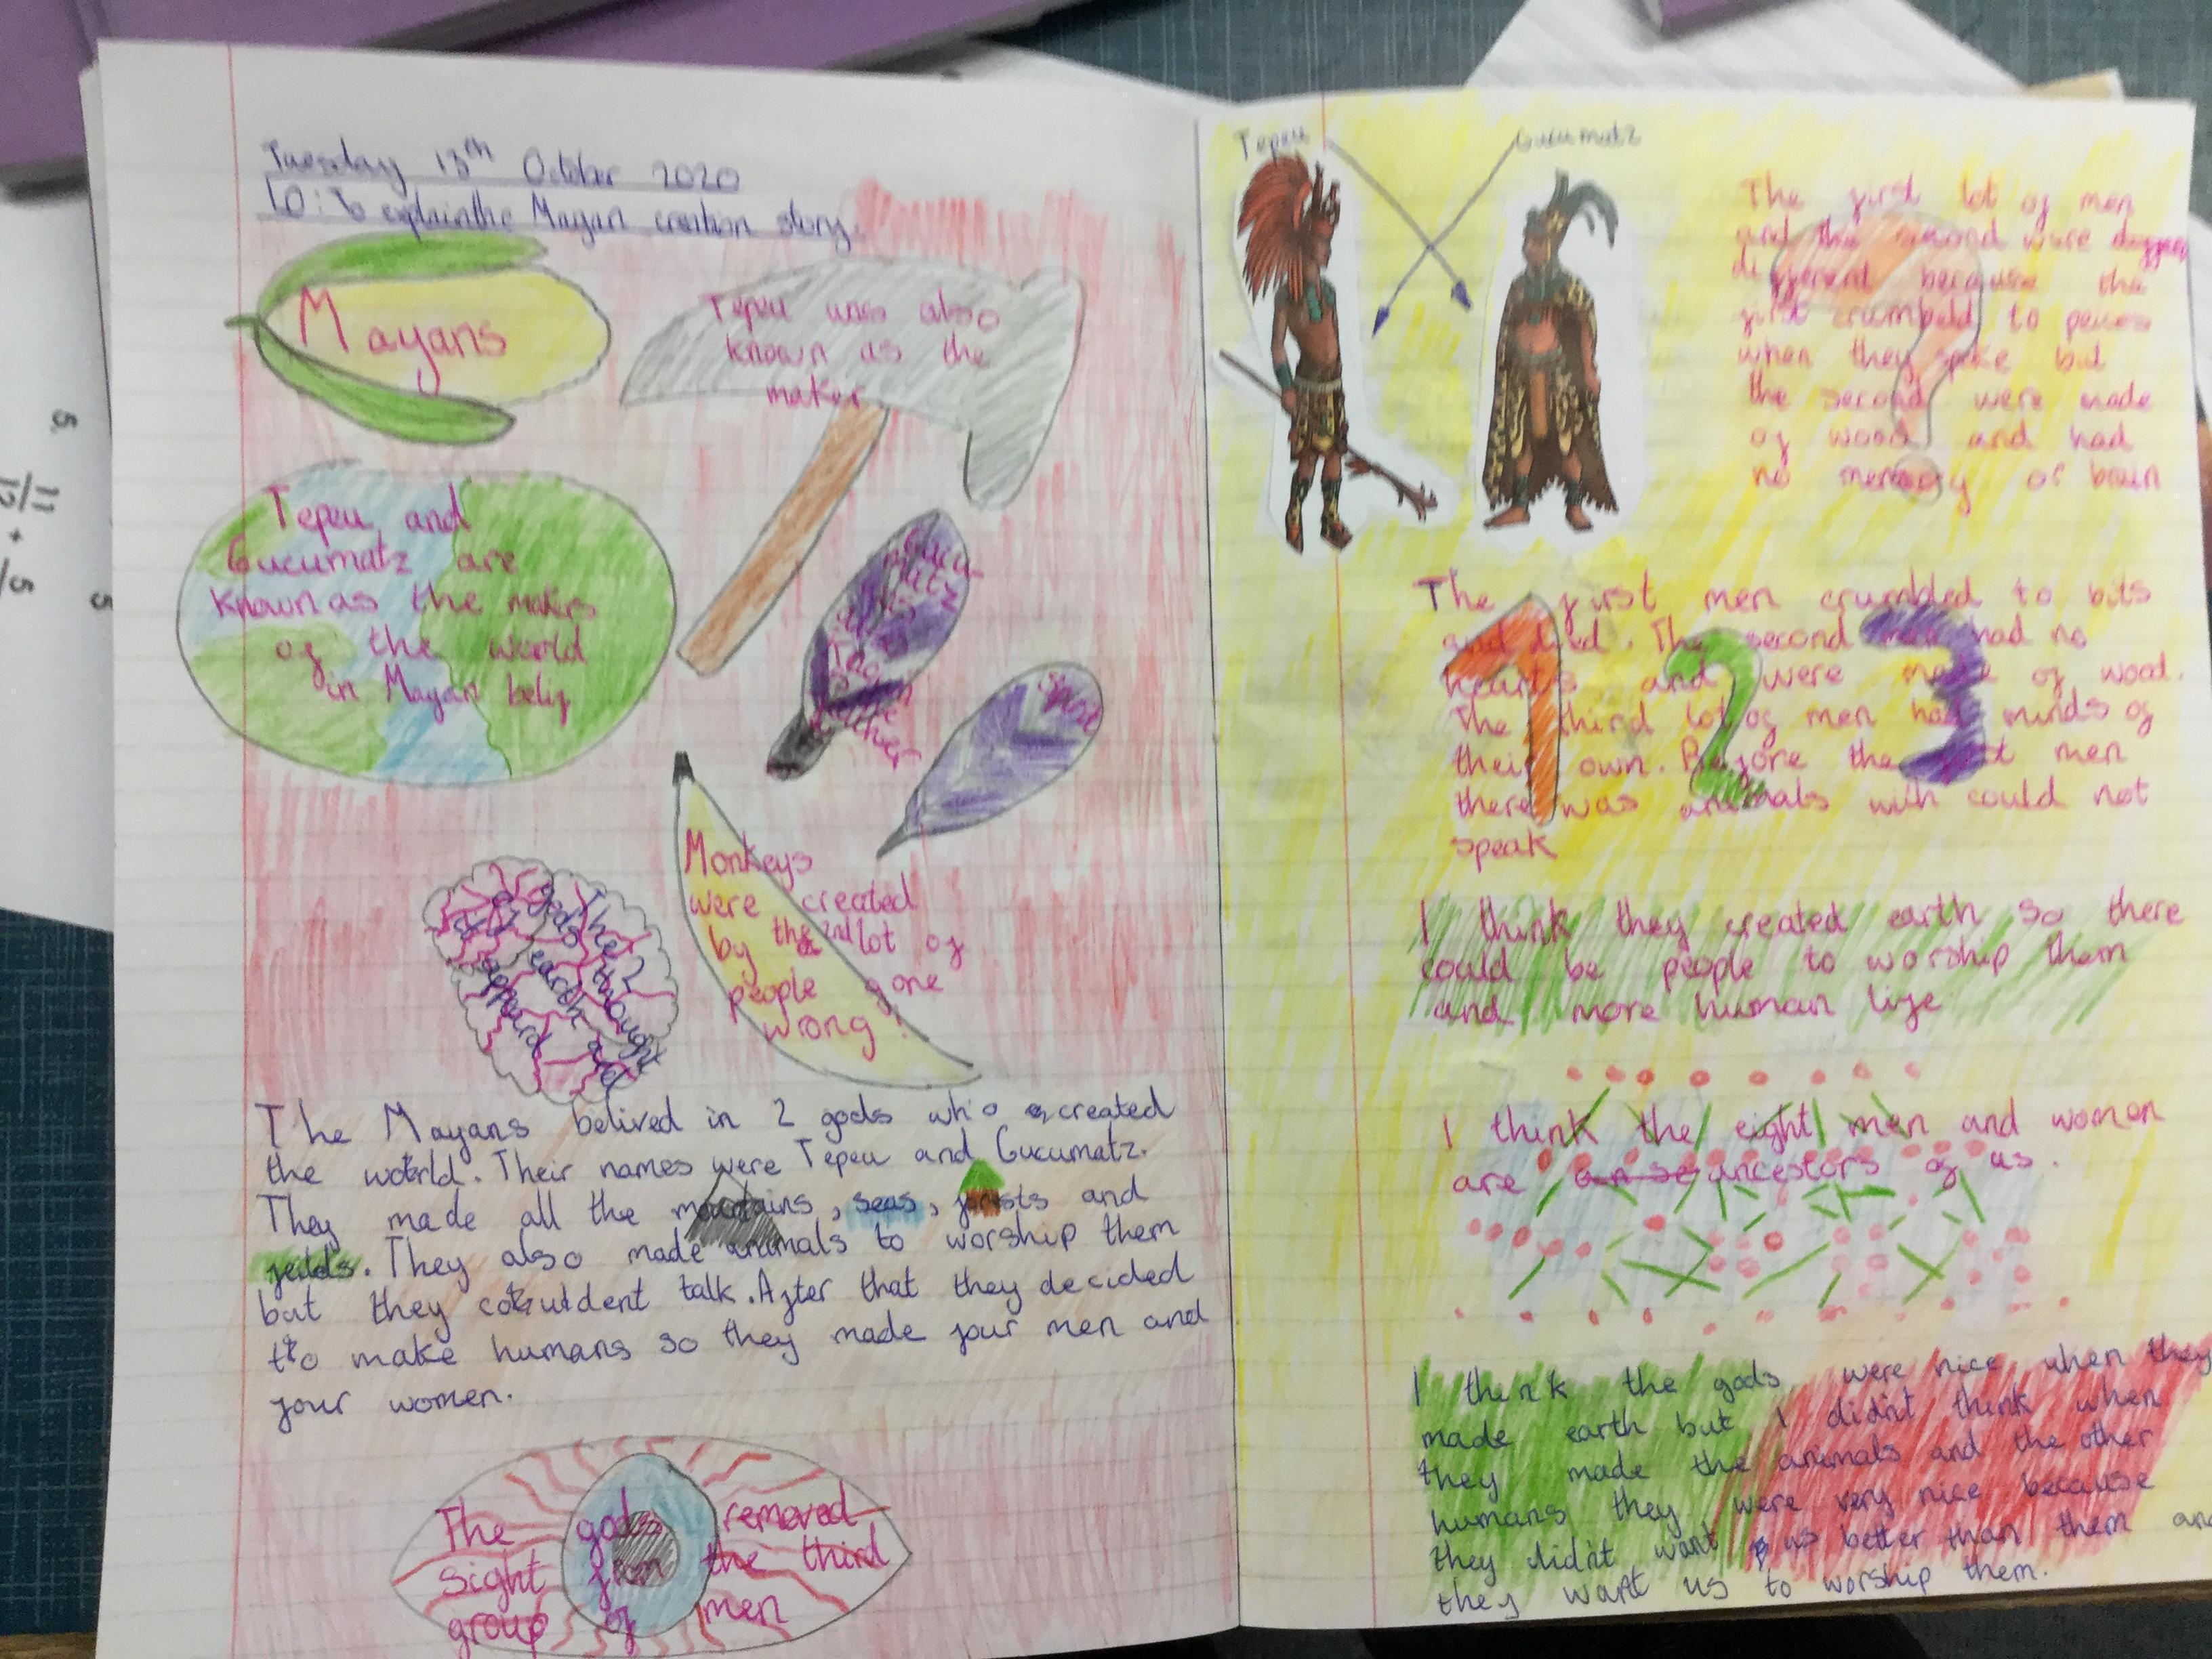 Tuesday 13th October 2020
LO: To explain the Mayan creation story.
Mayans
Tepeu was also
known as the
maker
Tepeu and
Gucumatz are
known as the makers
of the world
in Mayan belif
Gucu-
matz
is
feather
spirit
Monkeys
were created
by the 2nd lot of
people gone
wrong!
The 2
gods thought
and
earth
appeard
The Mayans belived in 2 gods who created
the world. Their names were Tepeu and Gucumatz.
They made all the mountains, seas, forists and
feilds. They also made animals to worship them
but they couldent talk. After that they decided
to make humans so they made four men and
four women.
The gods removed
sight from the third
group of men
Tepeu
Gucumatz
The first lot of men
and the second were
different because the
first crumbeld to peices
when they spoke but
the second were made
of wood and had
no memory or brain
The first men crumbled to bits
and died. The second men had no
hearts and were made of wood.
The third lot of men had minds of
their own. Before the first men
there was animals wich could not
speak
1 2 3
I think they created earth so there
could be people to worship them
and more human life
I think the eight men and women
are ancestors of us.
I think the gods were nice when they
made earth but I didn't think when
they made the animals and the other
humans they were very nice because
they didn't want us better than them and
they want us to worship them.
5.
11/12 + /5
5